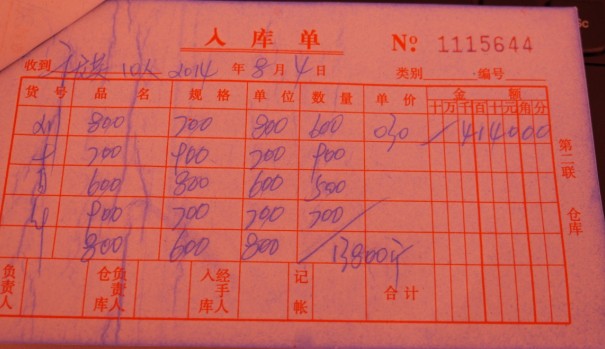 入库单 № 1115644
收到 10人 2014 年 8 月 4 日 类别 编号
货号 品名 规格 单位 数量 单价 金额
十万千百十元角分
800 700 800 600 414000
700 900 700 900
600 800 600 500
900 700 700 700
800 600 800 13800
负责人 仓库负责人 入库经手人 记帐 合计
第二联 仓库